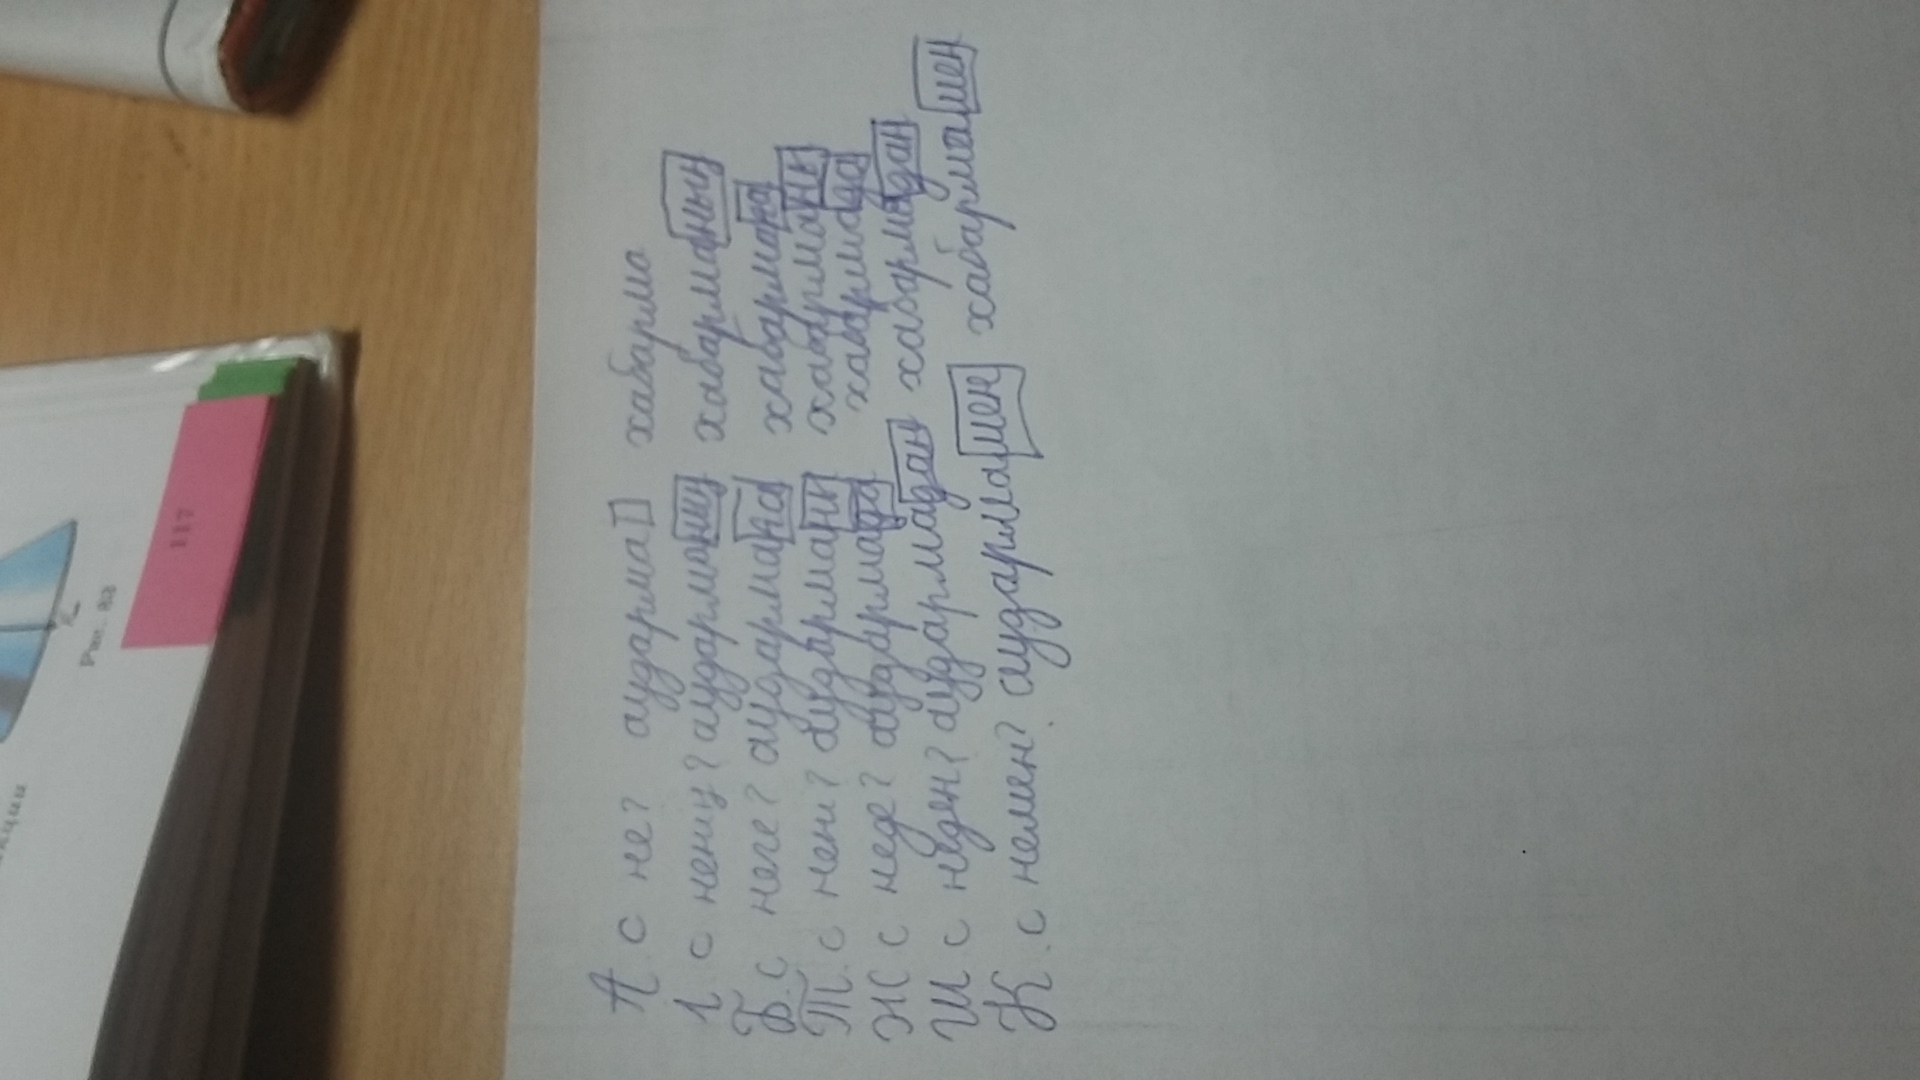 А.с не? аударма хабарма
І.с нениң? аударманиң хабарманың
Б.с неге? аудармаға хабармана
Т.с нени? аудармани хабарманы
Ж.с неде? аудармада хабармада
Ш.с неден? аудармадан хабармадан
К.с немен? аудармамен хабармамен
117
Рис. 83
кции
x